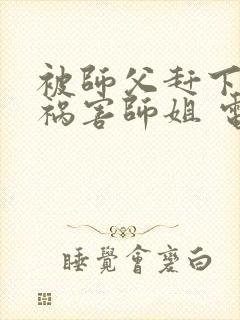 被師父赶下
禍害師姐 電
睡覺會變白